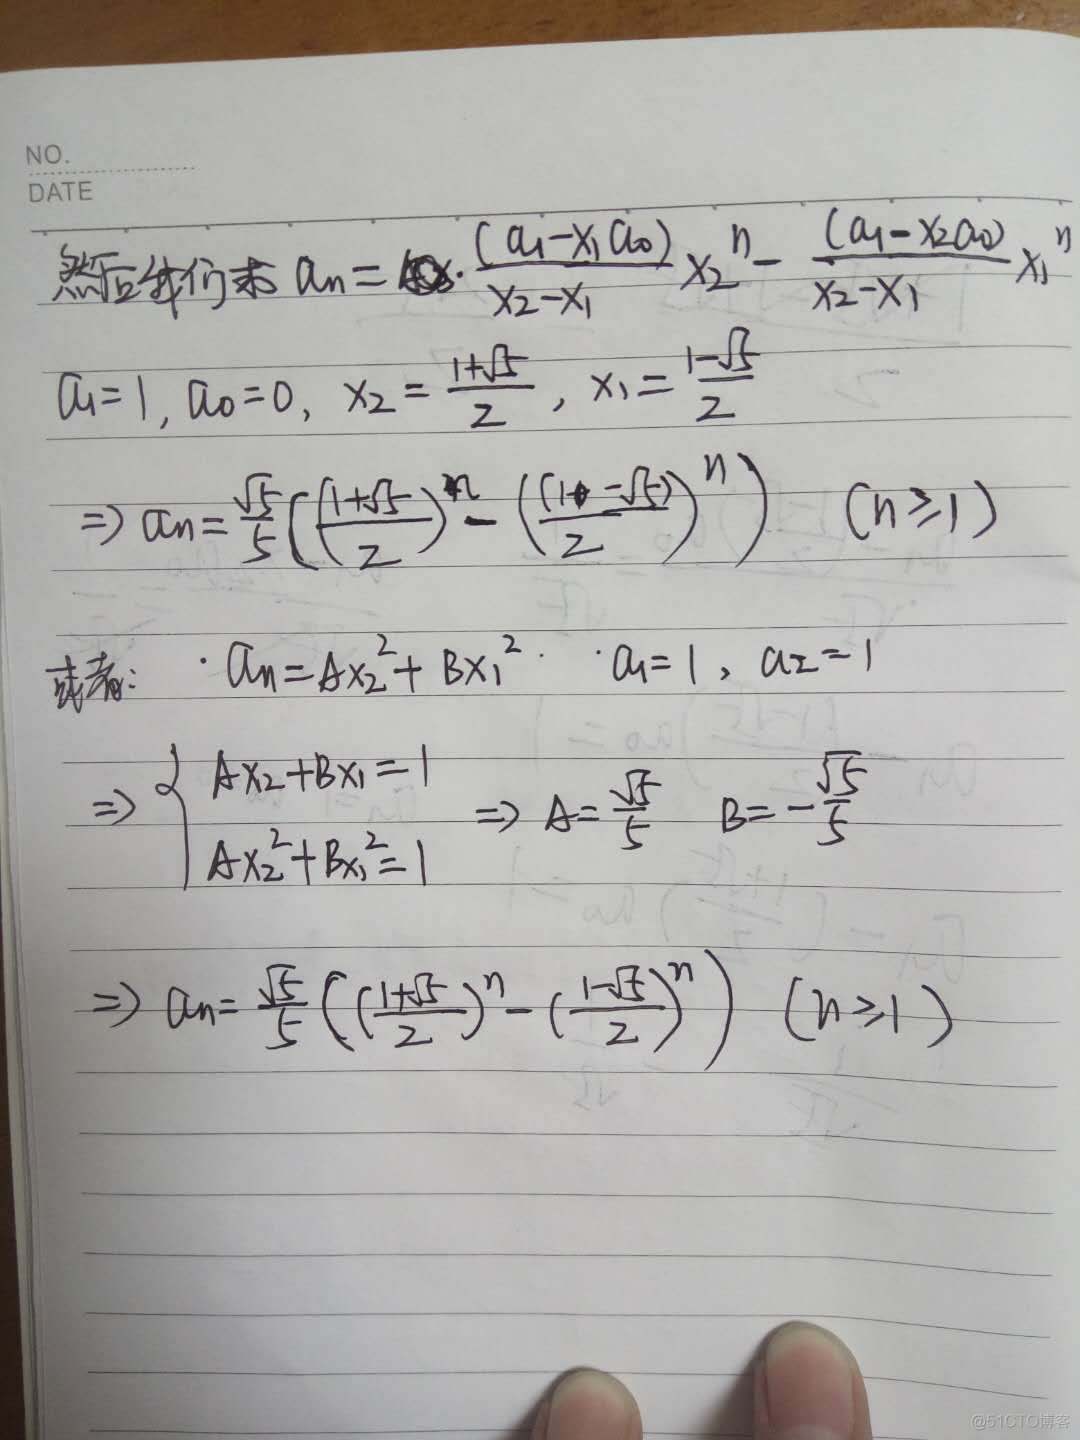 NO.
DATE
然后我们求 aₙ = (a₁-x₁a₀)/(x₂-x₁) x₂ⁿ - (a₁-x₂a₀)/(x₂-x₁) x₁ⁿ
a₁=1, a₀=0, x₂=(1+√5)/2, x₁=(1-√5)/2
=> aₙ=√5/5(((1+√5)/2)ⁿ-((1-√5)/2)ⁿ) (n≥1)
或者: aₙ=Ax₂²+Bx₁² a₁=1, a₂=1
=> { Ax₂+Bx₁=1
Ax₂²+Bx₁²=1 => A=√5/5 B=-√5/5
=> aₙ=√5/5(((1+√5)/2)ⁿ-((1-√5)/2)ⁿ) (n≥1)
@51CTO博客